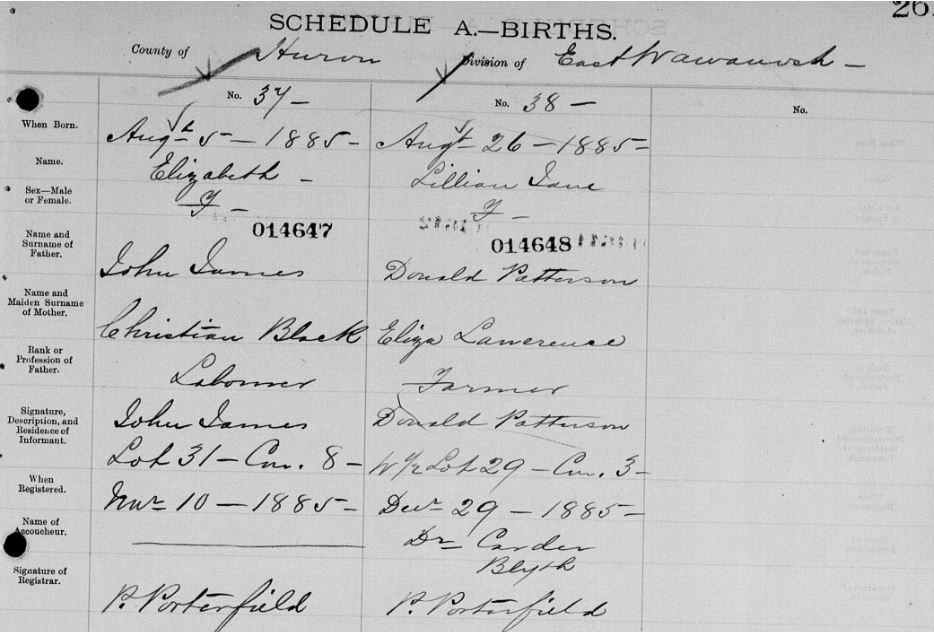 26
SCHEDULE A.—BIRTHS.
County of Huron Division of East Wawanosh —
No. 37 — No. 38 — No.
When Born. Augt 5 — 1885 — Augt 26 — 1885 —
Name. Elizabeth — Lillian Jane
Sex—Male or Female. F — F —
014647 014648
Name and Surname of Father. John James Donald Patterson
Name and Maiden Surname of Mother. Christian Black Eliza Lawerence
Rank or Profession of Father. Labourer Farmer
Signature, Description, and Residence of Informant. John James Donald Patterson
Lot 31 — Con. 8 — W½ Lot 29 — Con. 3 —
When Registered. Novr 10 — 1885 — Decr 29 — 1885 —
Name of Accoucheur. Dr Carder
Blyth
Signature of Registrar. P. Porterfield P. Porterfield